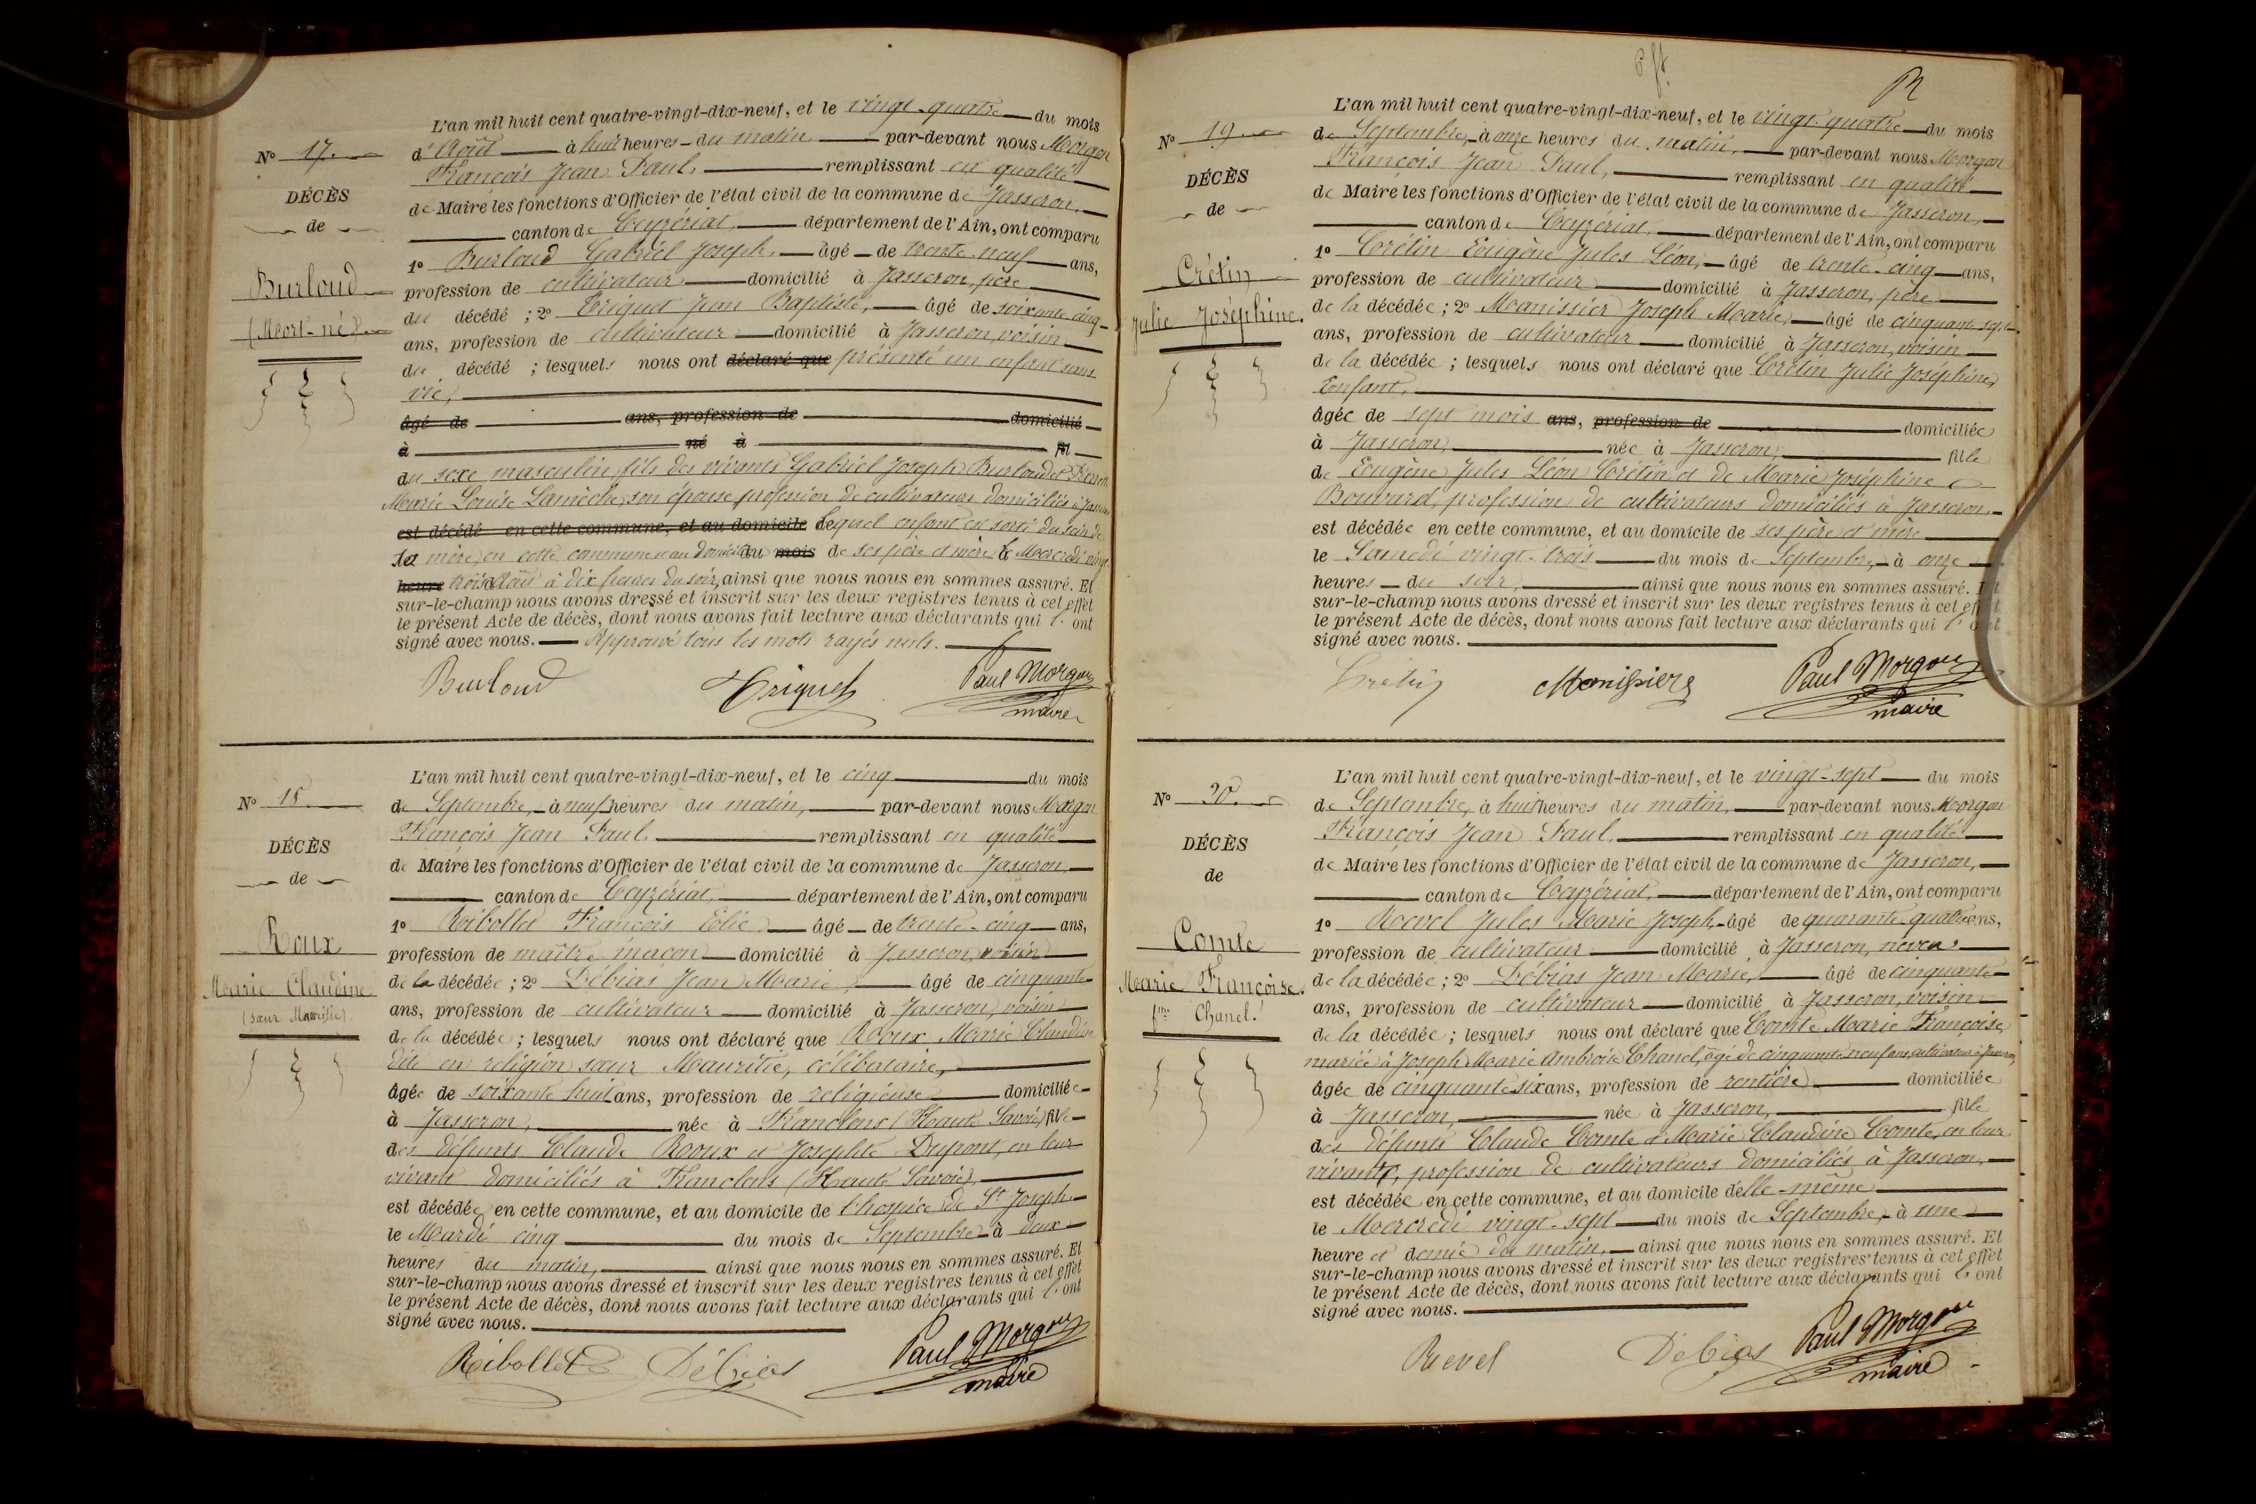 L'an mil huit cent quatre-vingt-dix-neuf, et le vingt-quatre du mois
N° 17.
d'Août à huit heures du matin par-devant nous Morgon
François Jean Paul, remplissant en qualité
DÉCÈS
de Maire les fonctions d'Officier de l'état civil de la commune de Jasseron,
de
canton de Ceyzériat, département de l'Ain, ont comparu
1° Burloud Gabriel Joseph, âgé de trente-neuf ans,
Burloud
profession de cultivateur domicilié à Jasseron, père
(Mort-né).
du décédé ; 2° Triquet Jean Baptiste, âgé de soixante-cinq
ans, profession de cultivateur domicilié à Jasseron, voisin
du décédé ; lesquels nous ont déclaré que présenté un enfant sans
vie,
âgé de ans, profession de domicilié
à né à fil
du sexe masculin, fils des vivants Gabriel Joseph Burloud et
Marie Louise Lamèche, son épouse, profession de cultivateurs domiciliés à Jasseron
est décédé en cette commune, et au domicile lequel enfant est sorti du sein de
sa mère, en cette commune et au domicile du mois de ses père et mère le Mercredi vingt-
heure trois Août à dix heures du soir, ainsi que nous nous en sommes assuré. Et
sur-le-champ nous avons dressé et inscrit sur les deux registres tenus à cet effet
le présent Acte de décès, dont nous avons fait lecture aux déclarants qui l'ont
signé avec nous. Approuvé tous les mots rayés nuls.
Burloud Triquet Paul Morgon
maire
L'an mil huit cent quatre-vingt-dix-neuf, et le cinq du mois
N° 18.
de Septembre, à neuf heures du matin, par-devant nous Morgon
François Jean Paul, remplissant en qualité
DÉCÈS
de Maire les fonctions d'Officier de l'état civil de la commune de Jasseron,
de
canton de Ceyzériat, département de l'Ain, ont comparu
1° Ribollet François Elie âgé de trente-cinq ans,
Roux
profession de maître maçon domicilié à Jasseron, voisin
Marie Claudine
de la décédée ; 2° Débias Jean Marie, âgé de cinquante
(sœur Mauritie).
ans, profession de cultivateur domicilié à Jasseron, voisin
de la décédée ; lesquels nous ont déclaré que Roux Marie Claudine
dite en religion sœur Mauritie, célibataire,
âgée de soixante huit ans, profession de religieuse domiciliée
à Jasseron, née à Franclens (Haute Savoie) fille
des défunts Claude Roux et Josephte Dupont, en leur
vivant domiciliés à Franclens (Haute Savoie),
est décédée en cette commune, et au domicile de l'hospice de St Joseph
le Mardi cinq du mois de Septembre à deux
heures du matin, ainsi que nous nous en sommes assuré. Et
sur-le-champ nous avons dressé et inscrit sur les deux registres tenus à cet effet
le présent Acte de décès, dont nous avons fait lecture aux déclarants qui l'ont
signé avec nous.
Ribollet Débias Paul Morgon
maire
L'an mil huit cent quatre-vingt-dix-neuf, et le vingt-quatre du mois
N° 19.
de Septembre, à onze heures du matin, par-devant nous Morgon
François Jean Paul, remplissant en qualité
DÉCÈS
de Maire les fonctions d'Officier de l'état civil de la commune de Jasseron,
de
canton de Ceyzériat, département de l'Ain, ont comparu
1° Crétin Eugène Jules Léon, âgé de trente-cinq ans,
Crétin
profession de cultivateur domicilié à Jasseron, père
Julie Joséphine.
de la décédée ; 2° Manissier Joseph Marie, âgé de cinquante sept
ans, profession de cultivateur domicilié à Jasseron, voisin
de la décédée ; lesquels nous ont déclaré que Crétin Julie Joséphine,
Enfant,
âgée de sept mois ans, profession de domiciliée
à Jasseron, née à Jasseron, fille
de Eugène Jules Léon Crétin et de Marie Joséphine
Bouvard, profession de cultivateurs domiciliés à Jasseron,
est décédée en cette commune, et au domicile de ses père et mère
le Samedi vingt-trois du mois de Septembre, à onze
heures du soir, ainsi que nous nous en sommes assuré. Et
sur-le-champ nous avons dressé et inscrit sur les deux registres tenus à cet effet
le présent Acte de décès, dont nous avons fait lecture aux déclarants qui l'ont
signé avec nous.
Crétin Manissier Paul Morgon
maire
L'an mil huit cent quatre-vingt-dix-neuf, et le vingt-sept du mois
N° 20.
de Septembre, à huit heures du matin, par-devant nous Morgon
François Jean Paul, remplissant en qualité
DÉCÈS
de Maire les fonctions d'Officier de l'état civil de la commune de Jasseron,
de
canton de Ceyzériat, département de l'Ain, ont comparu
1° Revel Jules Marie Joseph, âgé de quarante-quatre ans,
Comte
profession de cultivateur domicilié à Jasseron, neveu
Marie Françoise.
de la décédée ; 2° Débias Jean Marie, âgé de cinquante
fme Chanel.
ans, profession de cultivateur domicilié à Jasseron, voisin
de la décédée ; lesquels nous ont déclaré que Comte Marie Françoise
mariée à Joseph Marie Ambroise Chanel, âgé de cinquante neuf ans, cultivateur à Jasseron,
âgée de cinquante six ans, profession de rentière domiciliée
à Jasseron, née à Jasseron, fille
des défunts Claude Comte et Marie Claudine Comte, en leur
vivants, profession de cultivateurs domiciliés à Jasseron,
est décédée en cette commune, et au domicile d'elle-même
le Mercredi vingt-sept du mois de Septembre, à une
heure et demie du matin, ainsi que nous nous en sommes assuré. Et
sur-le-champ nous avons dressé et inscrit sur les deux registres tenus à cet effet
le présent Acte de décès, dont nous avons fait lecture aux déclarants qui l'ont
signé avec nous.
Revel Débias Paul Morgon
maire